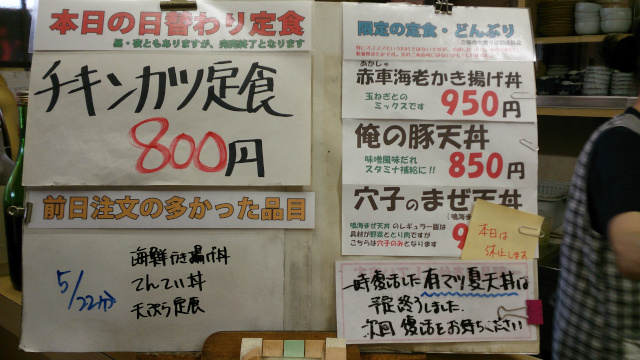 本日の日替わり定食
昼・夜ともありますが、完売終了となります
チキンカツ定食
800円
前日注文の多かった品目
5/22分
海鮮かき揚げ丼
てんてい丼
天ぷら定食
限定の定食・どんぶり
あかしゃ
赤車海老かき揚げ丼
玉ねぎとの
ミックスです
950円
俺の豚天丼
味噌風味だれ
スタミナ補給に!!
850円
穴子のまぜ天丼
鳴海まぜ天丼 のレギュラー版は
具材が野菜ととり肉ですが
こちらは穴子のみとなります
本日は
休止します
一時復活した有マツ夏天丼は
予定終うしました.
次回 復活をお待ちください